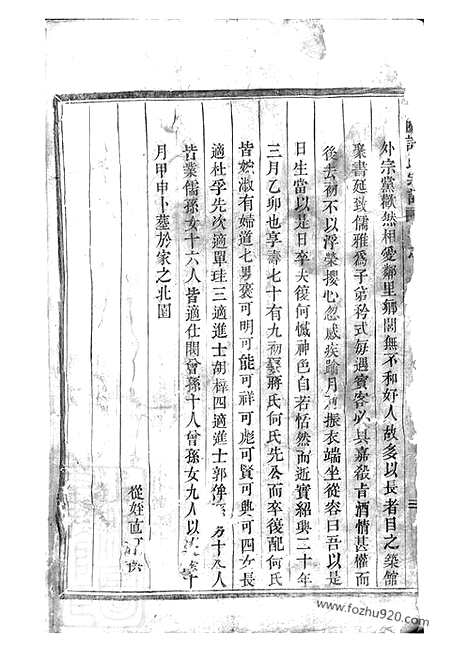 外宗黨歡然相愛鄰里鄉閭無不和好人故多以長者目之築館
聚書延致儒雅為子弟矜式每遇賓客必具嘉殽旨酒情甚權而
後去初不以浮榮攖心忽感疾踰月振衣端坐從容曰吾以是
日生當以是日卒夫復何憾神色自若恬然而逝實紹興二十年
三月乙卯也享壽七十有九初娶蔣氏何氏先公而卒後配何氏
皆婉淑有婦道七男褒可明可能可祥可彪可賢可興可四女長
適杜孚先次適單珪三適進士胡梓四適進士郭 孫 人
皆業儒孫女十六人皆適仕閥曾孫十人曾孫女九人以 十
月甲申卜塟於家之北園
從姪直
www.fozhu920.com